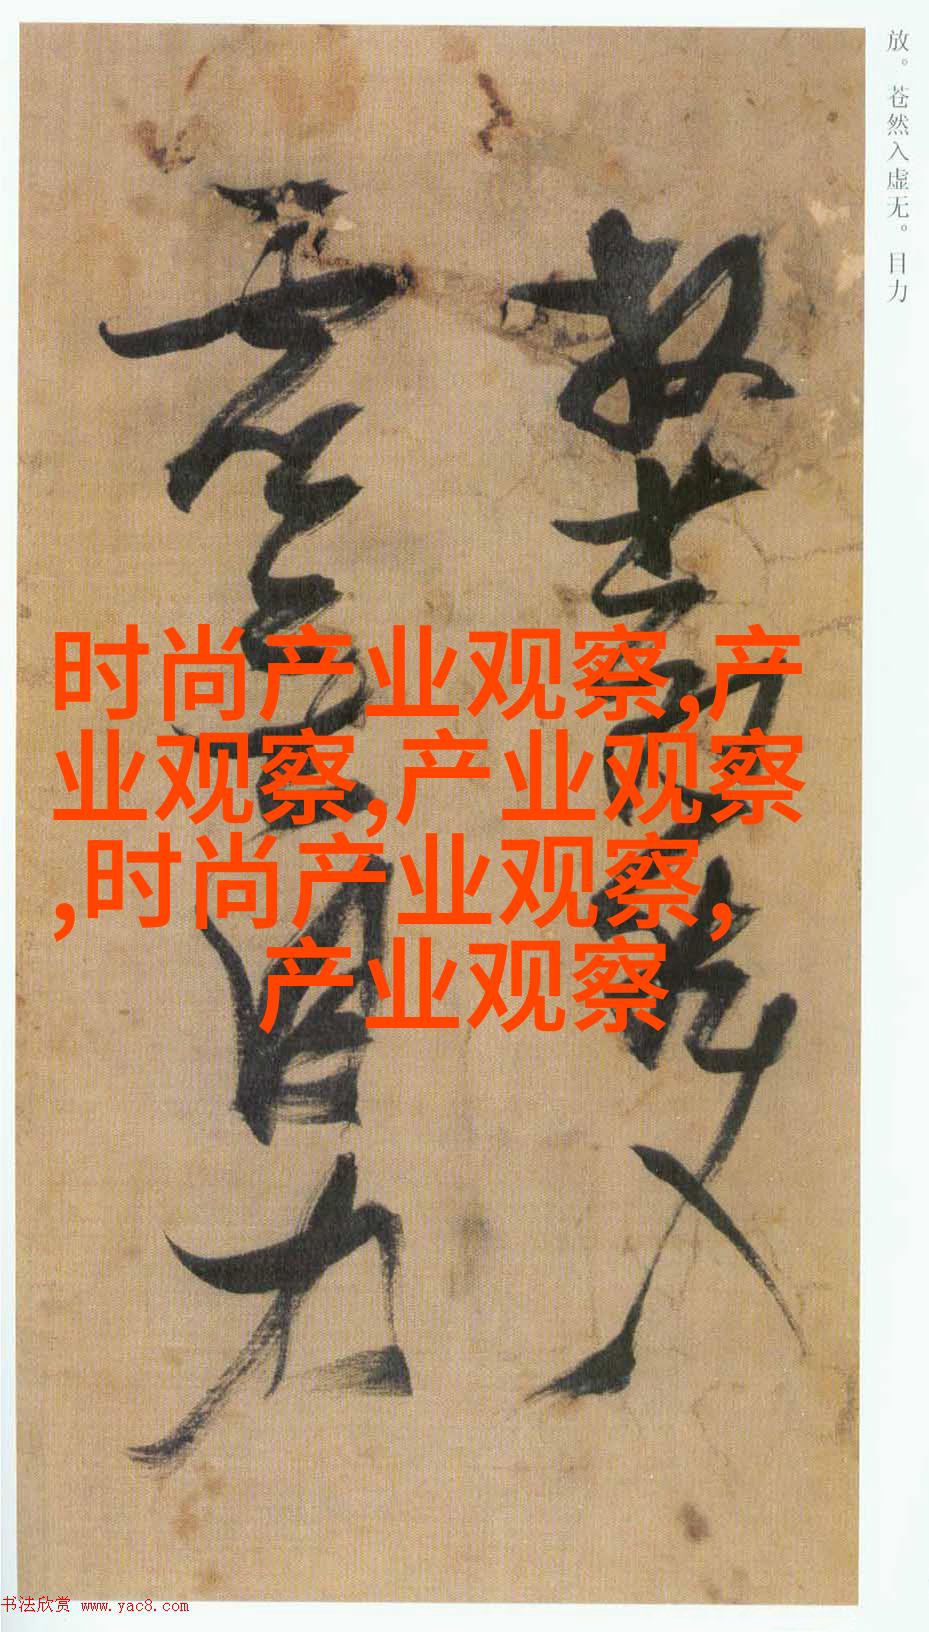 放。苍然入虚无。目力
放苍然入
虚无目力
时尚产业观察,产
业观察,产业观察
,时尚产业观察,
产业观察
书法欣赏 www.yac8.com